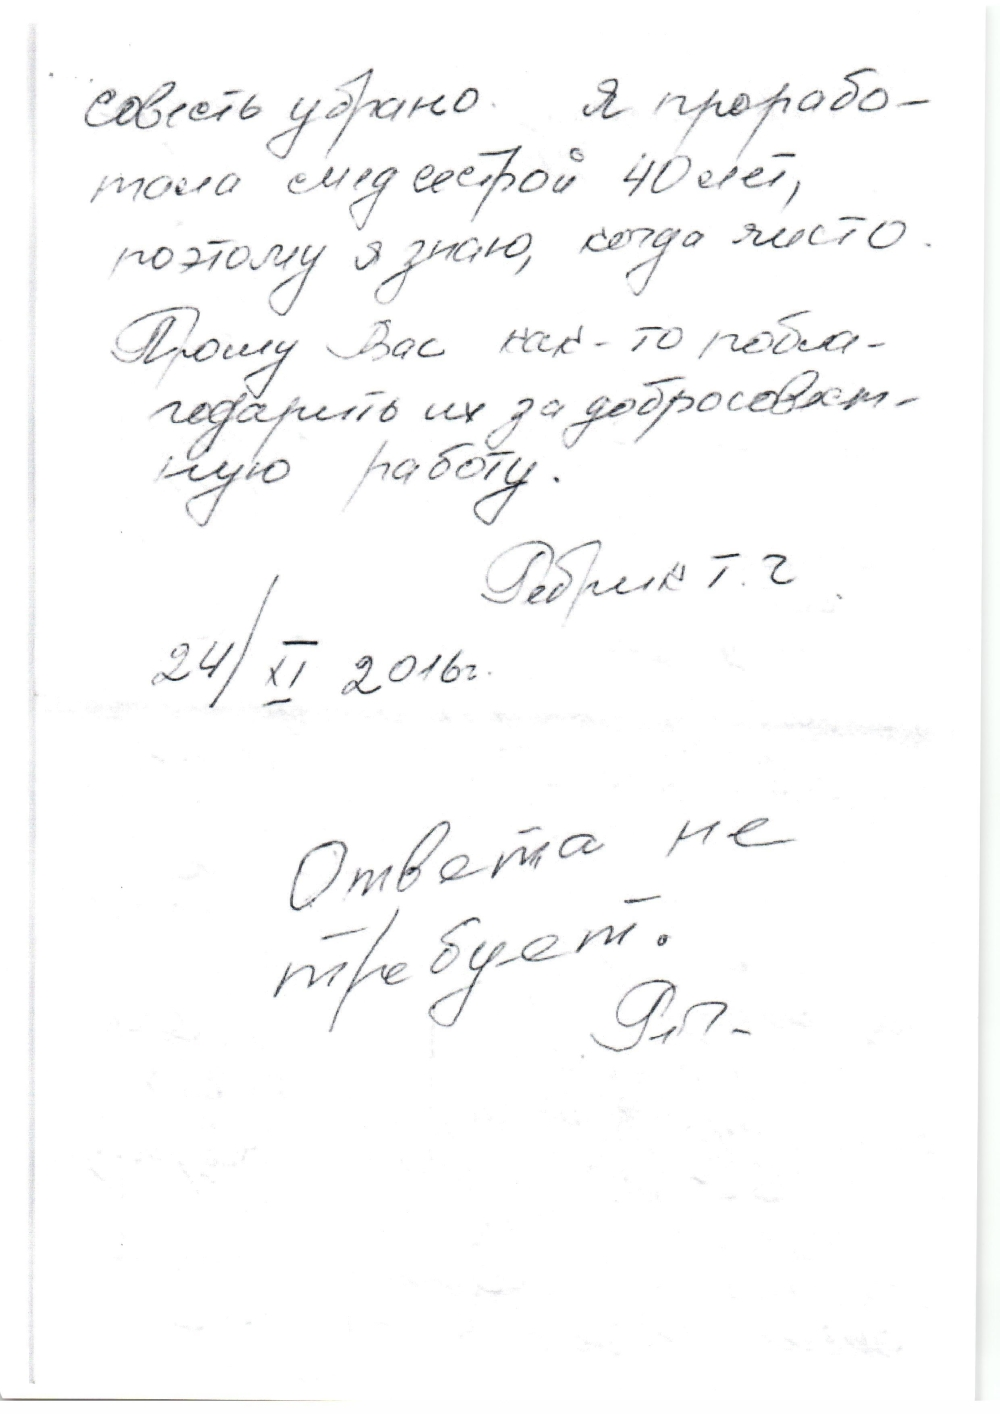 совесть убрано. Я прорабо-
тала медсестрой 40 лет,
поэтому я знаю, когда чисто.
Прошу Вас как-то побла-
годарить их за добросовест-
ную работу.
Ребрик Т. Г
24/XI 2016г.
Ответа не
требует.